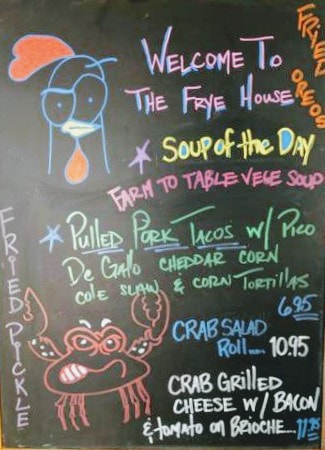 FRIED OREOS
WELCOME TO
THE FRYE HOUSE
SOUP OF THE DAY
FARM TO TABLE VEGE SOUP
PULLED PORK TACOS W/ PICO
DE GALLO CHEDDAR CORN
COLE SLAW & CORN TORTILLAS
6.95
FRIED PICKLE
CRAB SALAD
ROLL.... 10.95
CRAB GRILLED
CHEESE W/ BACON
& tomato on BRIOCHE.... 11.95